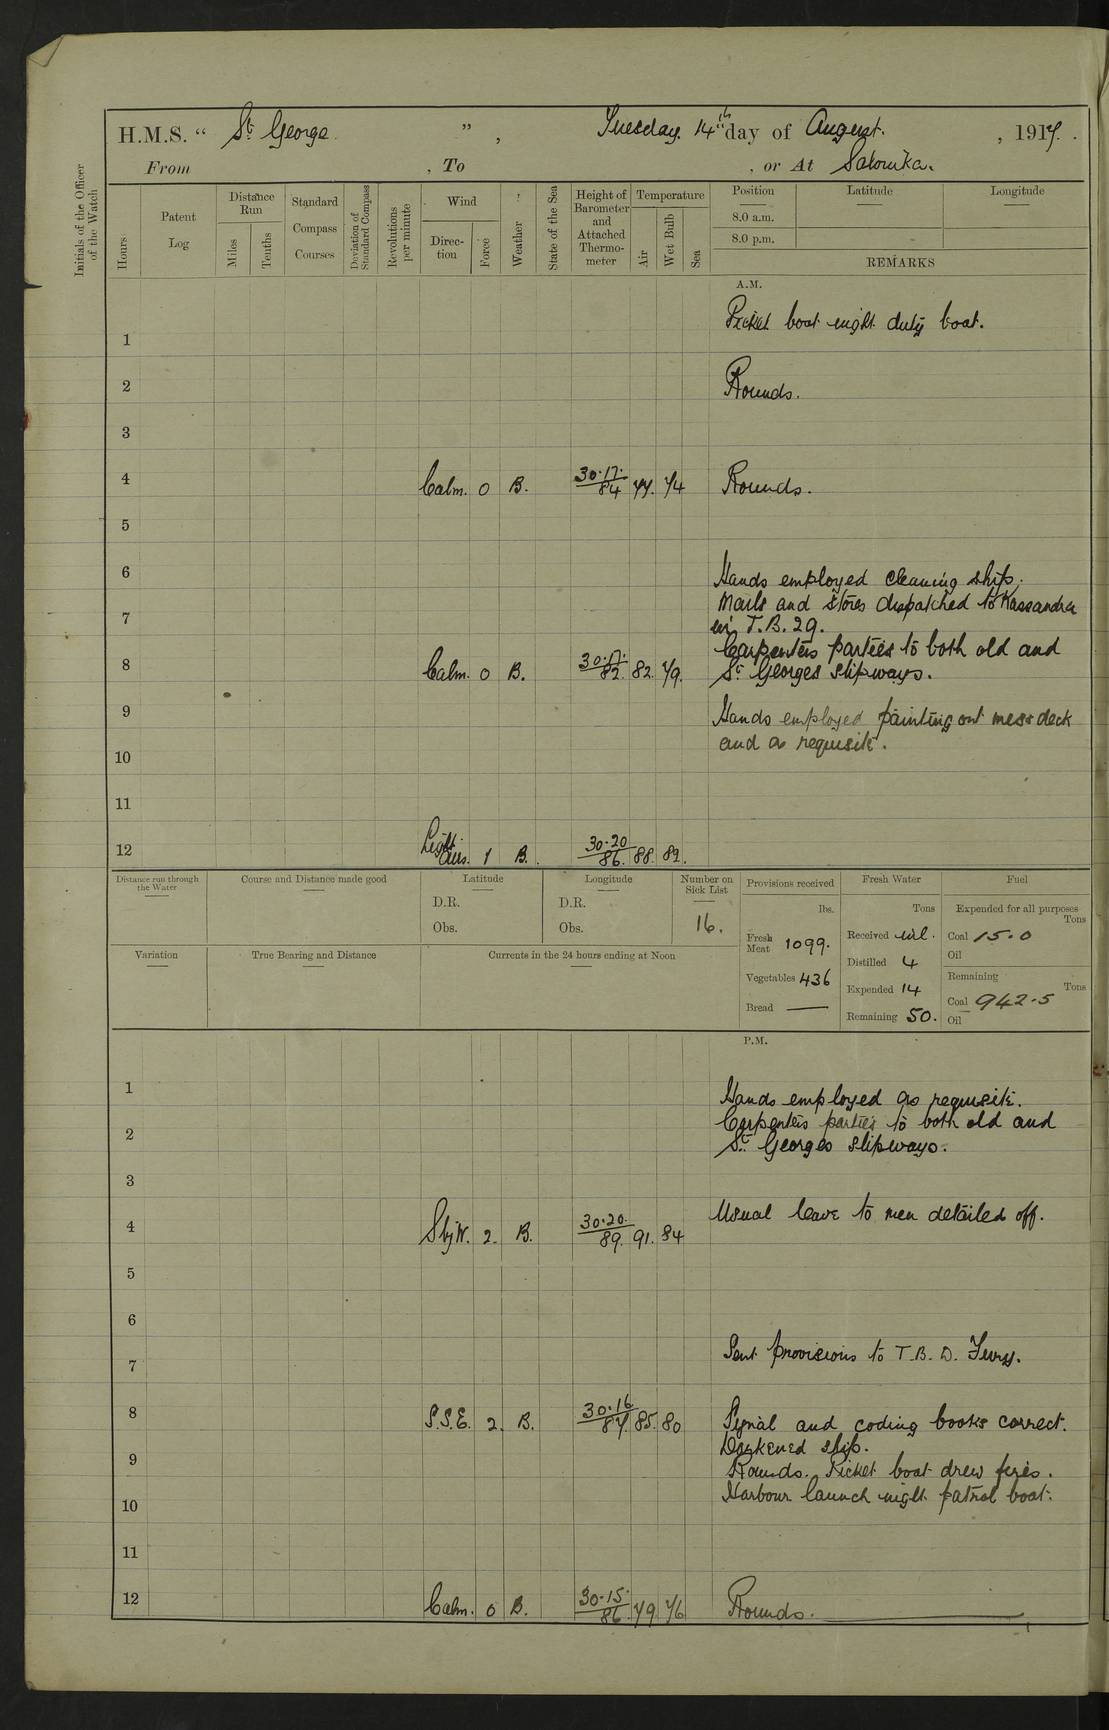 H.M.S. “ St George ” , Tuesday. 14th day of August. , 1917.
From , To , or At Salonika.
Initials of the Officer of the Watch
Hours
Patent Log
Distance Run
Miles
Tenths
Standard Compass Courses
Deviation of Standard Compass
Revolutions per minute
Wind
Direction
Force
Weather
State of the Sea
Height of Barometer and Attached Thermometer
Temperature
Air
Wet Bulb
Sea
Position Latitude Longitude
8.0 a.m.
8.0 p.m.
REMARKS
A.M.
Picket boat night duty boat.
1
2 Rounds.
3
4 Calm. 0 B. 30.17. 84 77. 74 Rounds.
5
6 Hands employed cleaning ship.
Mails and stores dispatched to Kassandra
7
in T.B. 29.
Carpenters parties to both old and
8 Calm. 0 B. 30.17. 82. 82. 79. St Georges slipways.
9 Hands employed painting out mess deck
and as requisite.
10
11
12 Light airs. 1 B. 30.20 86. 88. 82.
Distance run through the Water
Course and Distance made good
Latitude
D.R.
Obs.
Longitude
D.R.
Obs.
Number on Sick List
16.
Provisions received
lbs.
Fresh Meat 1099.
Vegetables 436
Bread —
Fresh Water
Tons
Received nil.
Distilled 4
Expended 14
Remaining 50.
Fuel
Expended for all purposes
Tons
Coal 15.0
Oil
Remaining
Tons
Coal 942.5
Oil
Variation
True Bearing and Distance
Currents in the 24 hours ending at Noon
P.M.
1 Hands employed as requisite.
Carpenters parties to both old and
2 St Georges slipways.
3
4 SbyW. 2. B. 30.20. 89. 91. 84 Usual leave to men detailed off.
5
6
7 Sent provisions to T.B.D. Fury.
8 S.S.E. 2. B. 30.16 87. 85. 80 Signal and coding books correct.
Darkened ship.
9 Rounds. Picket boat drew fires.
Harbour launch night patrol boat.
10
11
12 Calm. 0 B. 30.15. 86. 79 76 Rounds.